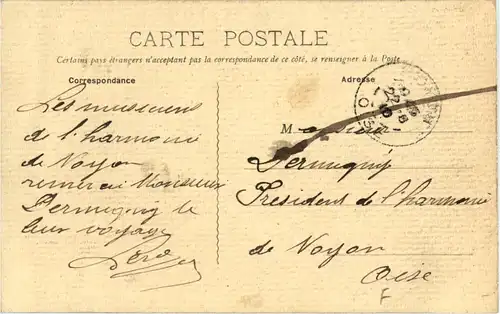 CARTE POSTALE
Certains pays étrangers n'acceptant pas la correspondance de ce côté, se renseigner à la Poste
Correspondance
Les musiciens
de l'harmonie
de Noyon
Monsieur
Dermigny
leur voyage
Adresse
Monsieur
Dermigny
Président de l'harmonie
de Noyon
Oise
F